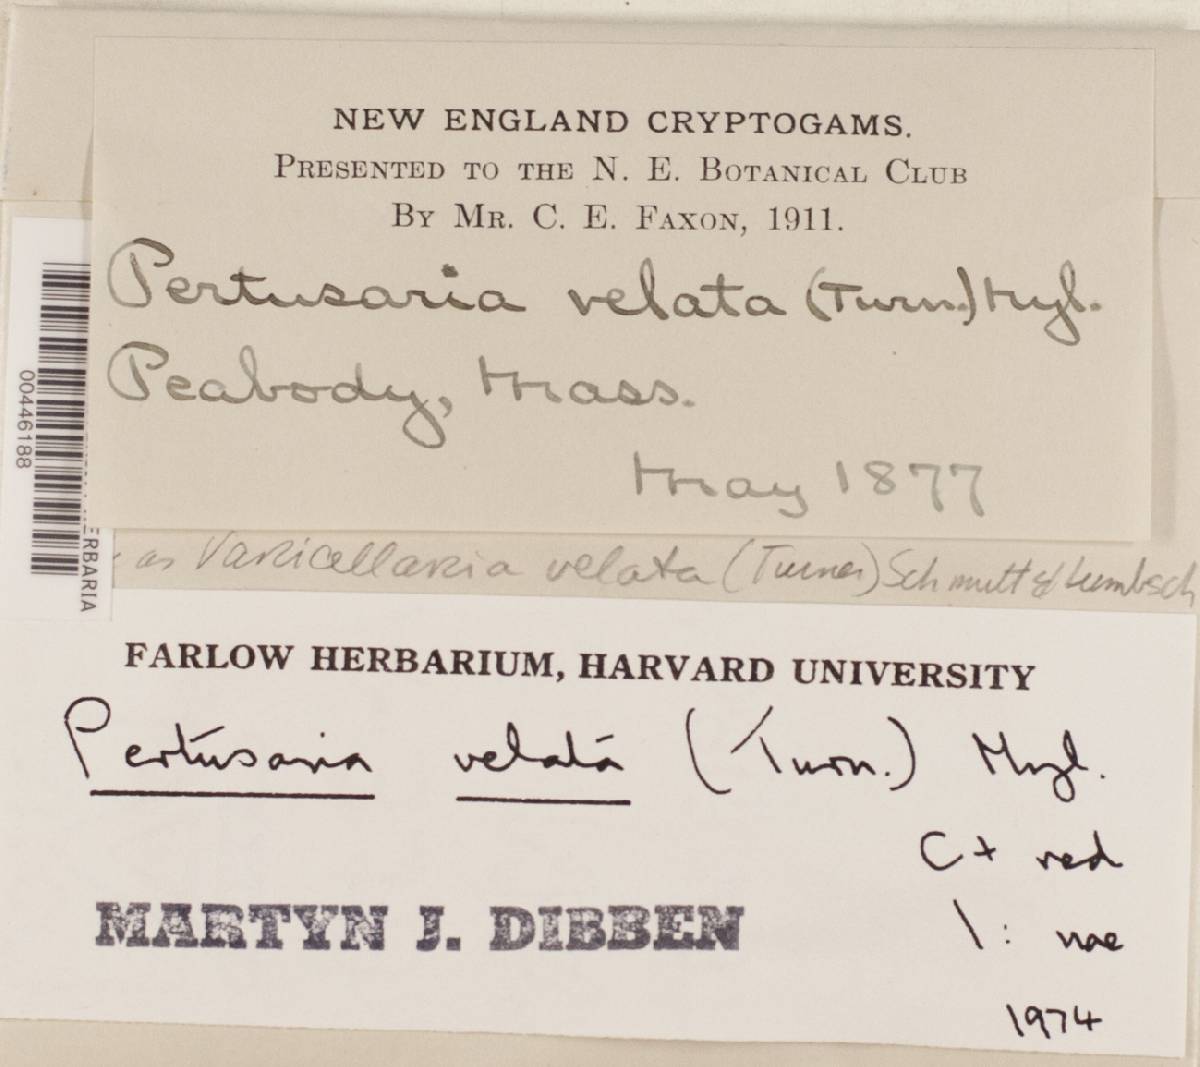 NEW ENGLAND CRYPTOGAMS.
PRESENTED TO THE N. E. BOTANICAL CLUB
BY MR. C. E. FAXON, 1911.
Pertusaria velata (Turn.) Nyl.
Peabody, Mass.
May 1877
00446188
ERBARIA
as Varicellaria velata (Turner) Schmitt & Lumbsch
FARLOW HERBARIUM, HARVARD UNIVERSITY
Pertusaria velata (Turn.) Nyl.
C+ red
MARTYN J. DIBBEN
1974